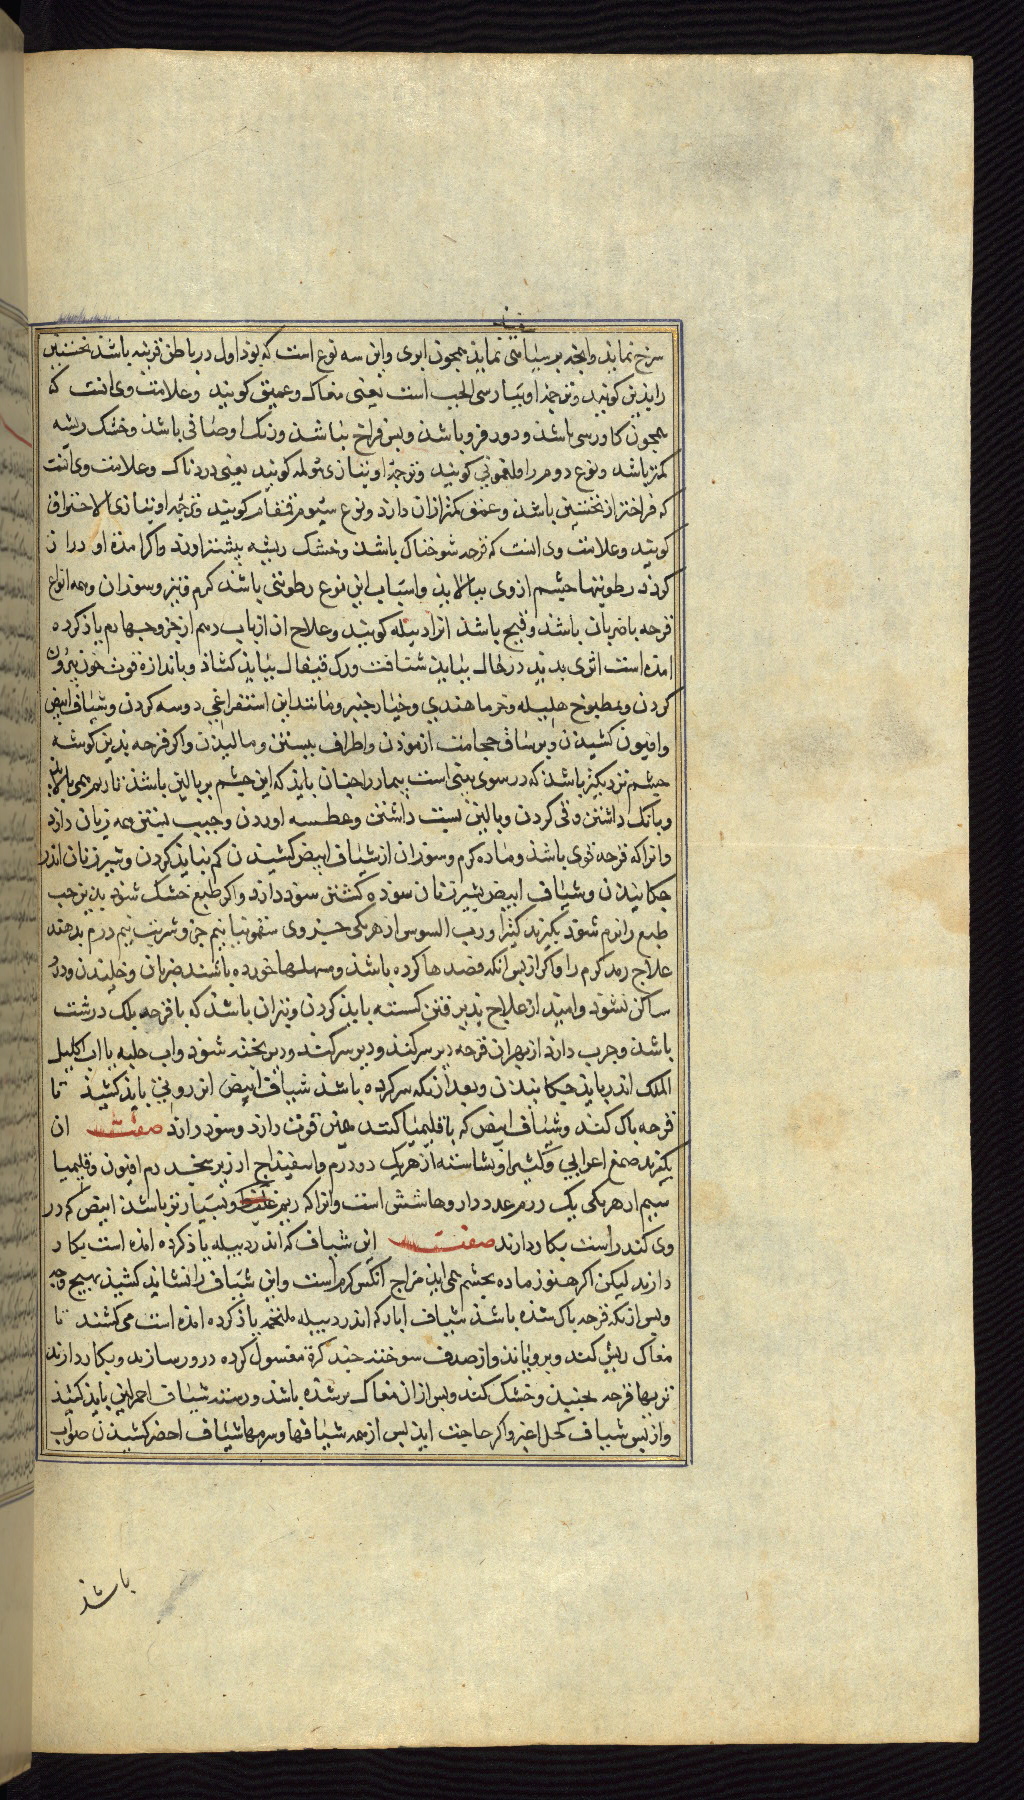 سرخ نماید وانچه بر سیاهی نماید همچون ابری واین سه نوع است که بوذ اول در باطن قرنیه باشذ نخستین
را بذین کویند وترجمهٔ او بتیارسی الجب است یعنی مغاک وعمیق کویند وعلامت وی انست که
همچون کاورسی باشذ ودور فرو باشذ وبس فراخ نباشذ ورنک او صافی باشذ وخشک ریشه
کمتر باشد ونوع دوم را کویند وترجمهٔ او بتازی کویند یعنی دردناک وعلامت وی انست
که فراختر از نخستین باشذ وعمق کمتر ازان دارد ونوع سیوم کویند وترجمه او بتازی الاحتراق
کویند وعلامت وی انست که قرحه شوخناک باشذ وخشک ریشه بیشتر اورد واکر امذه او دراز
کردد رطوبتها چشم از وی ببالاید واسباب این نوع رطوبتی باشذ کرم وتیز وسوزان وهمه انواع
قرحه با ضربان باشذ وقبیح باشذ انرا دبیله کویند وعلاج ان از باب دهم از جزو چهارم یاذ کرده
امذه است اثری بدیذ درحال بباید شتافت ورک قیفال بباید کشاذ وباندازه قوت خون بیرون
کردن وبمطبوخ هلیله وخرما هندی وخیار چنبر ومانند این استفراغی دوسه کردن وشیاف ابیض
وافیون کشیذن وبر ساق حجامت ازموذن واطراف ببستن ومالیذن واکر قرحه بذین کوشه
چشم نزدیکتر باشذ که در سوی بینی است بیمار را چنان بایذ که این چشم بر بالین باشذ تا ریم همی بالاید
وبانک داشتن وقی کردن وبالین بست داشتن وعطسه اوردن وجیب بستن همه زیان دارد
وانرا که قرحه قوی باشذ وماده کرم وسوزان از شیاف ابیض کشیذن کم نباید کردن وشیر زنان اندر
چکانیذن وشیاف ابیض بشیر زنان سوذه کشتن سوددارد واکر طبع خشک شود بدین حب
طبع را نرم شود بکیرند کثیرا ورب السوس از هر یکی جزوی سقمونیا نیم جزو شربت نیم درم بدهند
علاج رمد کرم را واکر از بس انکه فصدها کرده باشذ ومسهلها خورده باشند ضربان وخلیدن ودرد
ساکن نشوذ وامیذ از علاج بذیرفتن کسسته بایذ کردن وبتران باشذ که با قرحه بلک درشت
باشذ وجرب دارد از بهر ان قرحه دیر سر کند ودیر سر کند ودیر بخته شود واب حلبه یا اب اکلیل
الملک اندر باید چکانیذن وبعد ازانکه سر کرده باشذ شیاف ابیض انزروتی بایذ کشیذ تا
قرحه باک کند وشیاف ابیض که با قلیمیا کنند همین قوت دارد وسود دارد صفت ان
بکیرند صمغ اعرابی وکثیرا ونشاسته از هریک دودرم واسفیذاج ارزیر سنجد درم افیون وقلیمیا
سیم از هر یکی یک درم عدد دارو ها شش است وانرا که ریم غلیظ وبسیار تر باشذ ابیض که در
وی کندر است بکار دارند صفت این شیاف که اندر دبیله یاذ کرده امذه است بکار
دارند لیکن اکر هنوز ماده بچشم همی ایذ مزاج انکس کرم است واین شیاف را نشایذ کشیذ بهیچ وجه
وبس ازانکه قرحه باک شذه باشذ شیاف ابار که اندر دبیله ملتحمه یاذ کرده امذه است می کشند تا
مغاک ریش کند وبرویاند واز صدف سوخته چند کرة مغسول کرده درور سازند وبکار دارند
تربها قرحه بچیند وخشک کند وبس ازان مغاک بر شذه باشذ ودرستد شیاف احمر لین بایذ کشیذ
واز بس شیاف کحل اغبر واکر حاجت ایذ بس از همه شیافها وسرمها شیاف اخضر کشیذن صواب
باشذ